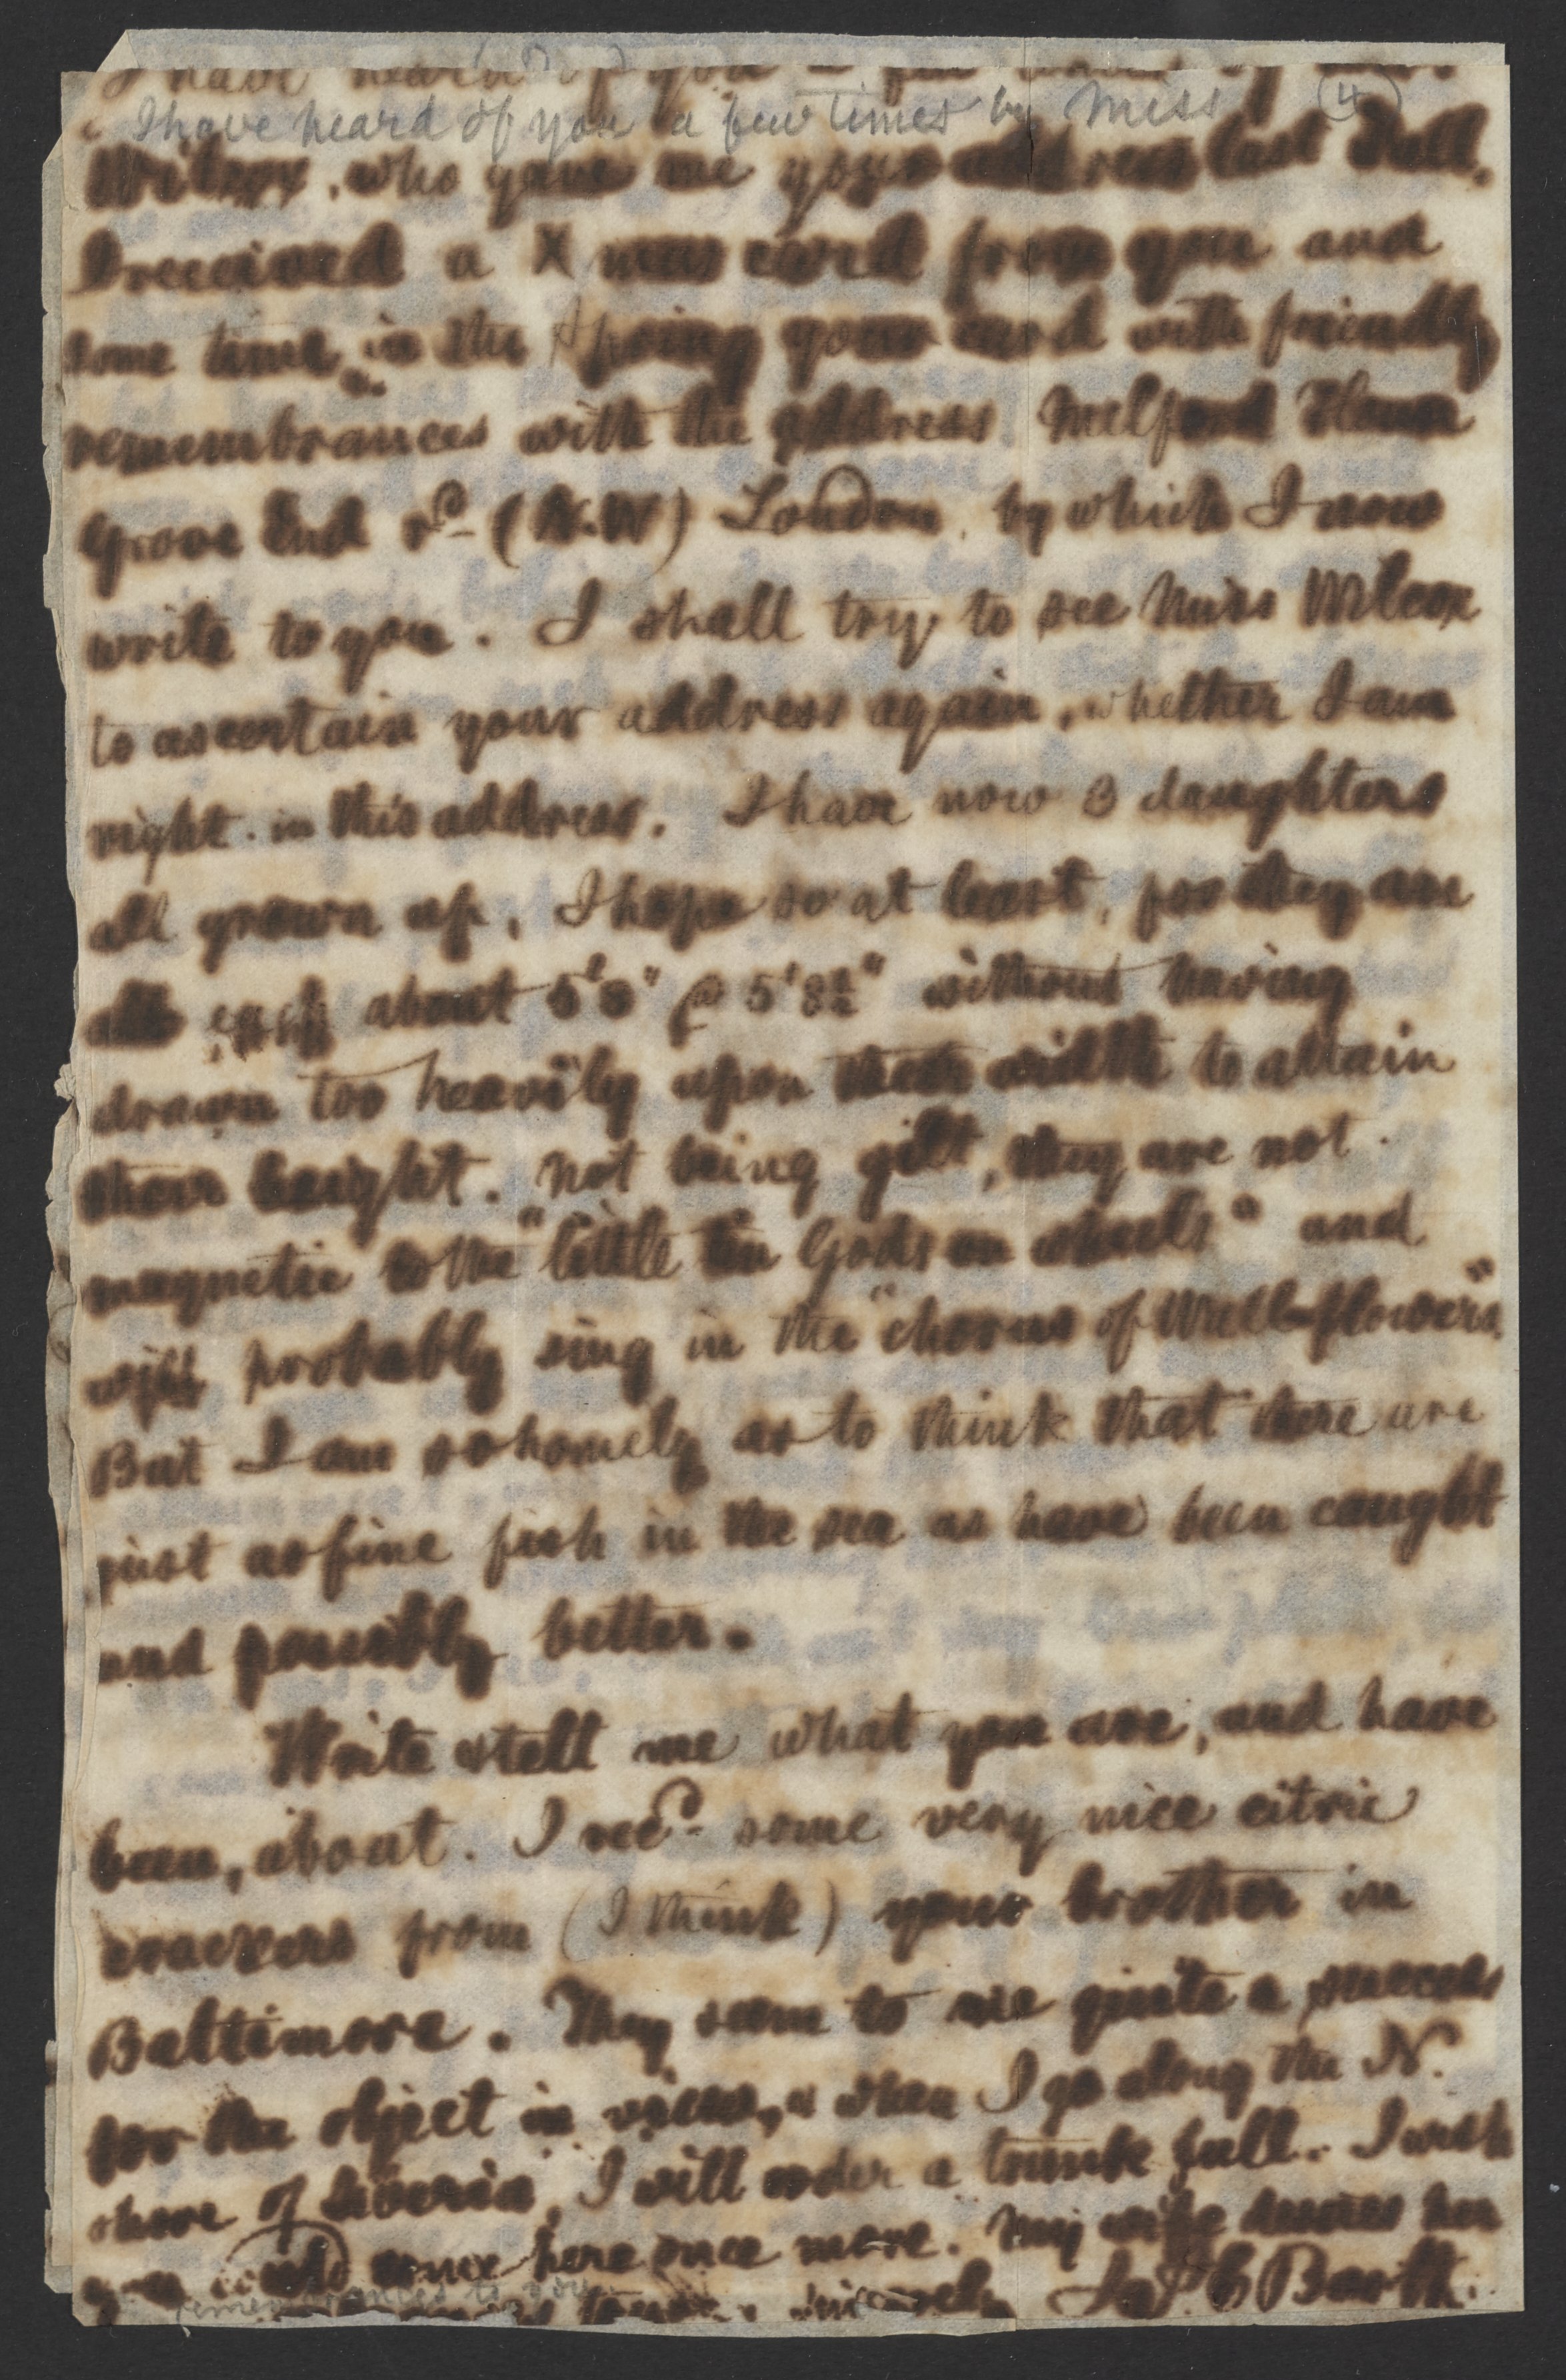 I have heard of you a few times by Miss
(4)
I have heard of you a few times by Miss
Wilcox, who gave me your address last Fall.
I received a Xmas card from you and
some time in the Spring your card with friendly
remembrances with the address Melford House
Grove End rd (N.W) London, by which I now
write to you. I shall try to see Miss Wilcox
to ascertain your address again, whether I am
right in this address. I have now 3 daughters
all grown up, I hope so at least, for they are
each about 5'5" @ 5' " without having
drawn too heavily upon their width to attain
their height. Not being gilt, they are not
magnetic to the "little tin Gods on wheels" and
will probably sing in the "chorus of Wall-flowers".
But I am so homely as to think that there are
just as fine fish in the sea as have been caught
and possibly better.
Write & tell me what you are, and have
been, about. I recd. some very nice citric
crackers from (I think) your brother in
Baltimore. They seem to me quite a success
for the object in view, & when I go along the N.
shore of Siberia, I will order a trunk full. I wish
you could come here once more. My wife desires her
remembrances to you
to you. sincerely Barth.